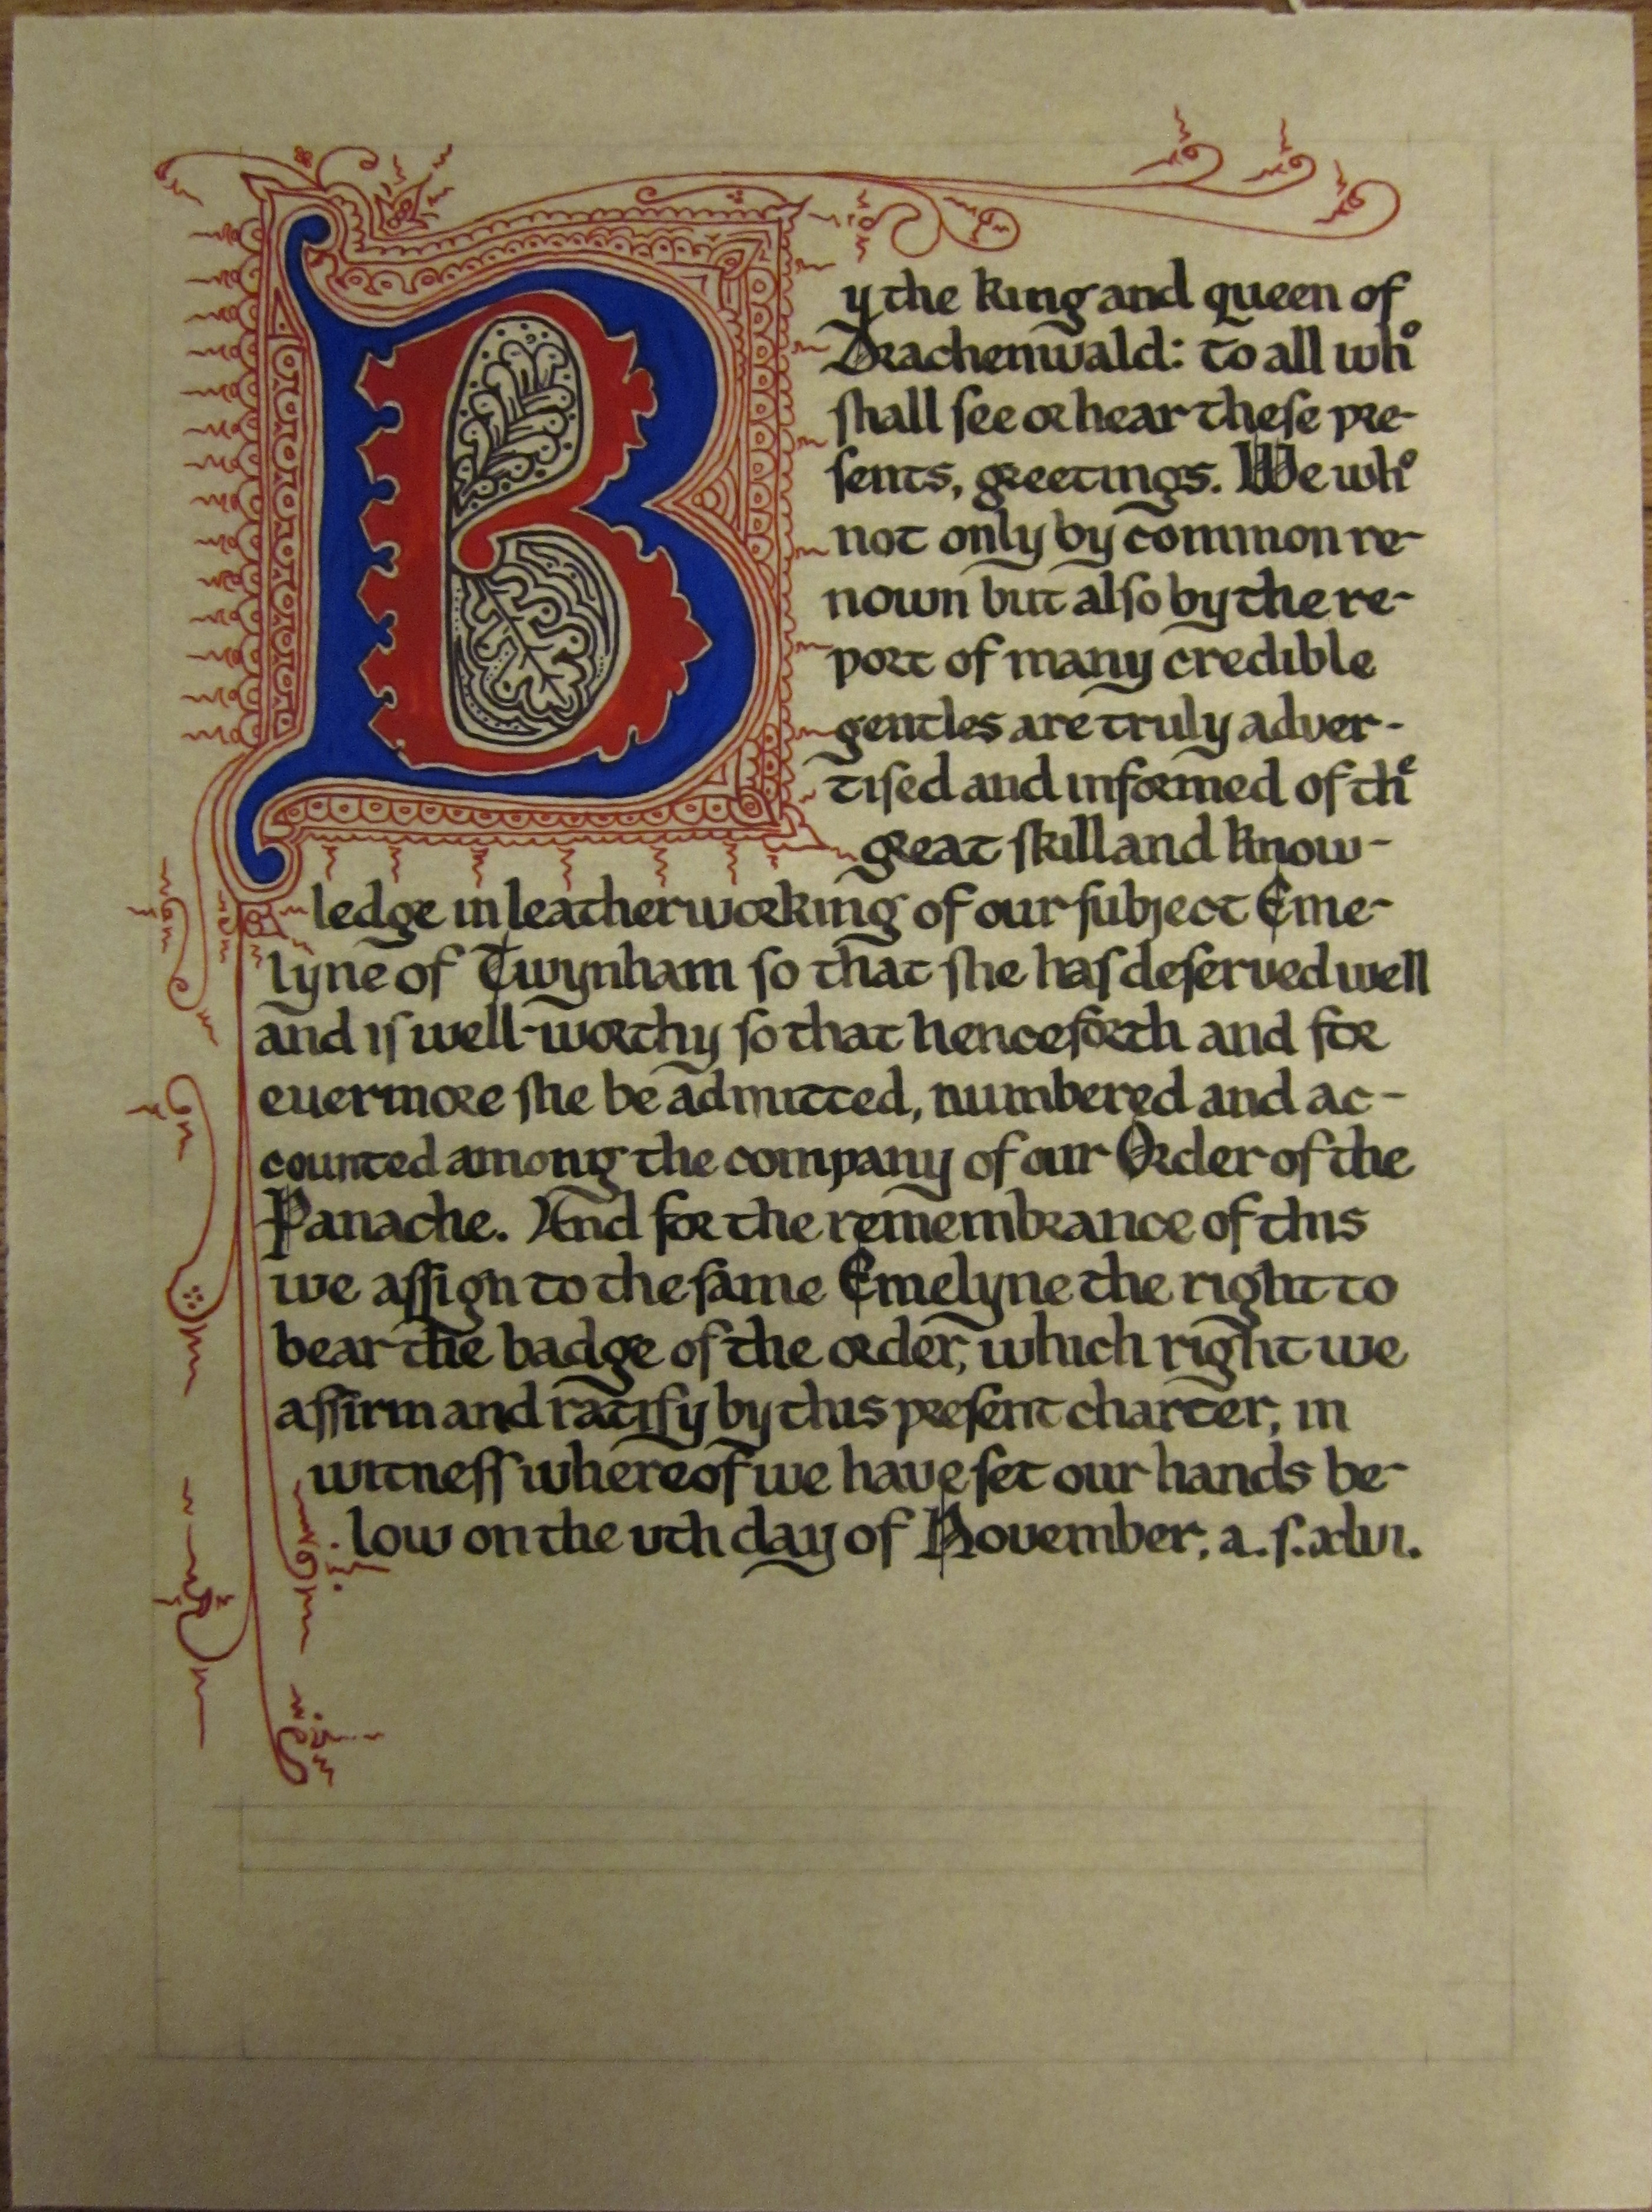 By the king and queen of
Drachenwald: to all who
ſhall ſee or hear theſe pre-
ſents, greetings. We who
not only by common re-
nown but alſo by the re-
port of many credible
gentles are truly adver-
tiſed and informed of the
great ſkill and know-
ledge in leatherworking of our ſubject Eme-
lyne of Twynham ſo that ſhe haſ deſerved well
and iſ well-worthy ſo that henceforth and for
euermore ſhe be admitted, numbered and ac-
counted among the company of our Order of the
Panache. And for the remembrance of this
we aſſign to the ſame Emelyne the right to
bear the badge of the order, which right we
affirm and ratify by this preſent charter, in
witneſſ whereof we haue ſet our hands be-
low on the vth day of November, a. ſ. xlvi.